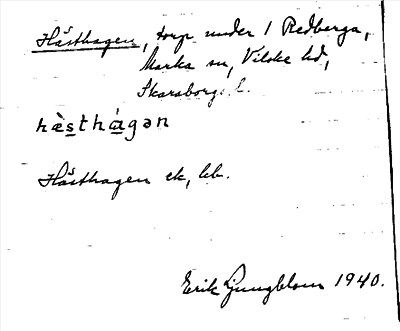 Hästhagen, torp under 1 Redberga,
Marka sn, Vilske hd,
Skaraborgs L.
hæ̀sthágən
Hästhagen ek, kb.
Erik Ljungblom 1940.